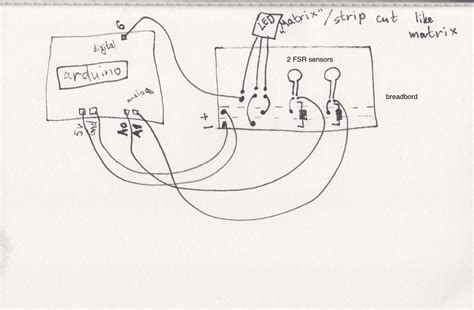 6
digital
arduino
analog
5V
gnd
A0
A1
LED
"Matrix"/strip cut like
matrix
2 FSR sensors
breadbord
+
-